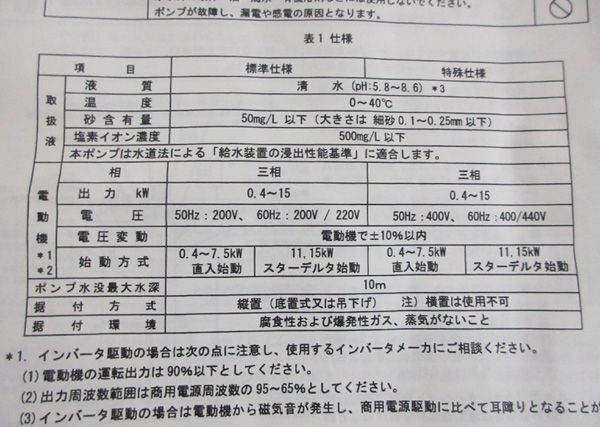 ポンプが故障し、漏電や感電の原因となります。
表1 仕様
項 目 標準仕様 特殊仕様
取扱液 液質 清水 (pH:5.8~8.6) *3
温度 0~40℃
砂含有量 50mg/L 以下 (大きさは 細砂 0.1~0.25mm以下)
塩素イオン濃度 500mg/L 以下
本ポンプは水道法による「給水装置の浸出性能基準」に適合します。
電動機 *1 *2 相 三相 三相
出力 kW 0.4~15 0.4~15
電圧 50Hz:200V、 60Hz:200V / 220V 50Hz:400V、 60Hz:400/440V
電圧変動 電動機で±10%以内
始動方式 0.4~7.5kW 11,15kW 0.4~7.5kW 11,15kW
直入始動 スターデルタ始動 直入始動 スターデルタ始動
ポンプ水没最大水深 10m
据付方式 縦置 (底置式又は吊下げ) 注) 横置は使用不可
据付環境 腐食性および爆発性ガス、蒸気がないこと
*1. インバータ駆動の場合は次の点に注意し、使用するインバータメーカにご相談ください。
(1) 電動機の運転出力は 90%以下としてください。
(2) 出力周波数範囲は商用電源周波数の 95~65%としてください。
(3) インバータ駆動の場合は電動機から磁気音が発生し、商用電源駆動に比べて耳障りとなることが